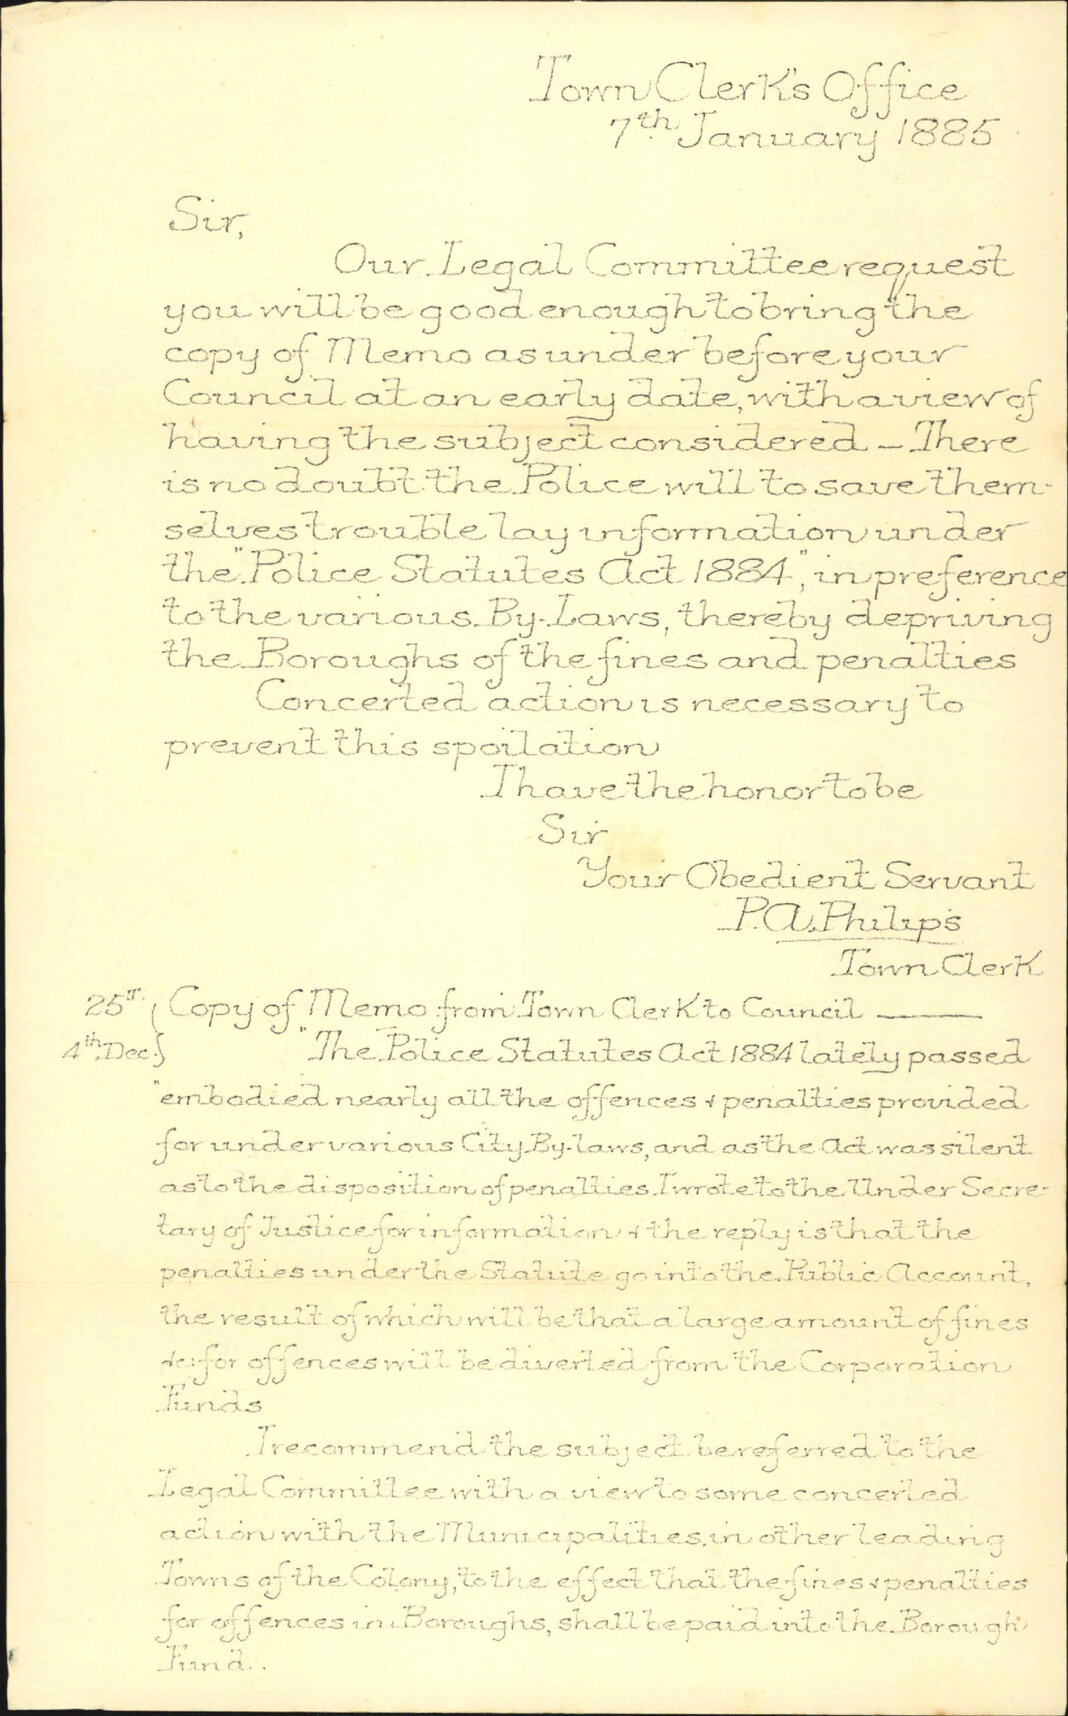 Town Clerk's Office
7th January 1885
Sir,
Our Legal Committee request
you will be good enough to bring the
copy of Memo as under before your
Council at an early date, with a view of
having the subject considered – There
is no doubt the Police will to save them-
selves trouble lay information under
the "Police Statutes Act 1884", in preference
to the various By-Laws, thereby depriving
the Boroughs of the fines and penalties
Concerted action is necessary to
prevent this spoilation
I have the honor to be
Sir
Your Obedient Servant
P.A. Philips
Town Clerk
Copy of Memo from Town Clerk to Council ——
4th Dec. "The Police Statutes Act 1884 lately passed
"embodied nearly all the offences & penalties provided
for under various City By-laws, and as the Act was silent
as to the disposition of penalties. I wrote to the Under Secre-
tary of Justice for information & the reply is that the
penalties under the Statute go into the Public Account,
the result of which will be that a large amount of fines
&c: for offences will be diverted from the Corporation
Funds
I recommend the subject be referred to the
Legal Committee with a view to some concerted
action with the Municipalities, in other leading
Towns of the Colony, to the effect that the fines & penalties
for offences in Boroughs, shall be paid into the Borough
Fund..